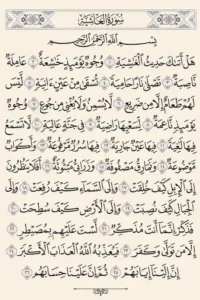 سُورَةُ الْغَاشِيَةِ
بِسْمِ اللَّهِ الرَّحْمَٰنِ الرَّحِيمِ
هَلْ أَتَىٰكَ حَدِيثُ الْغَٰشِيَةِ ۝١ وُجُوهٌ يَوْمَئِذٍ خَٰشِعَةٌ ۝٢ عَامِلَةٌ
نَّاصِبَةٌ ۝٣ تَصْلَىٰ نَارًا حَامِيَةً ۝٤ تُسْقَىٰ مِنْ عَيْنٍ ءَانِيَةٍ ۝٥ لَّيْسَ
لَهُمْ طَعَامٌ إِلَّا مِن ضَرِيعٍ ۝٦ لَّا يُسْمِنُ وَلَا يُغْنِي مِن جُوعٍ ۝٧ وُجُوهٌ
يَوْمَئِذٍ نَّاعِمَةٌ ۝٨ لِّسَعْيِهَا رَاضِيَةٌ ۝٩ فِي جَنَّةٍ عَالِيَةٍ ۝١٠ لَّا تَسْمَعُ
فِيهَا لَٰغِيَةً ۝١١ فِيهَا عَيْنٌ جَارِيَةٌ ۝١٢ فِيهَا سُرُرٌ مَّرْفُوعَةٌ ۝١٣ وَأَكْوَابٌ
مَّوْضُوعَةٌ ۝١٤ وَنَمَارِقُ مَصْفُوفَةٌ ۝١٥ وَزَرَابِيُّ مَبْثُوثَةٌ ۝١٦ أَفَلَا يَنظُرُونَ
إِلَى الْإِبِلِ كَيْفَ خُلِقَتْ ۝١٧ وَإِلَى السَّمَاءِ كَيْفَ رُفِعَتْ ۝١٨ وَإِلَى
الْجِبَالِ كَيْفَ نُصِبَتْ ۝١٩ وَإِلَى الْأَرْضِ كَيْفَ سُطِحَتْ ۝٢٠
فَذَكِّرْ إِنَّمَا أَنتَ مُذَكِّرٌ ۝٢١ لَّسْتَ عَلَيْهِم بِمُصَيْطِرٍ ۝٢٢
إِلَّا مَن تَوَلَّىٰ وَكَفَرَ ۝٢٣ فَيُعَذِّبُهُ اللَّهُ الْعَذَابَ الْأَكْبَرَ ۝٢٤
إِنَّ إِلَيْنَا إِيَابَهُمْ ۝٢٥ ثُمَّ إِنَّ عَلَيْنَا حِسَابَهُم ۝٢٦